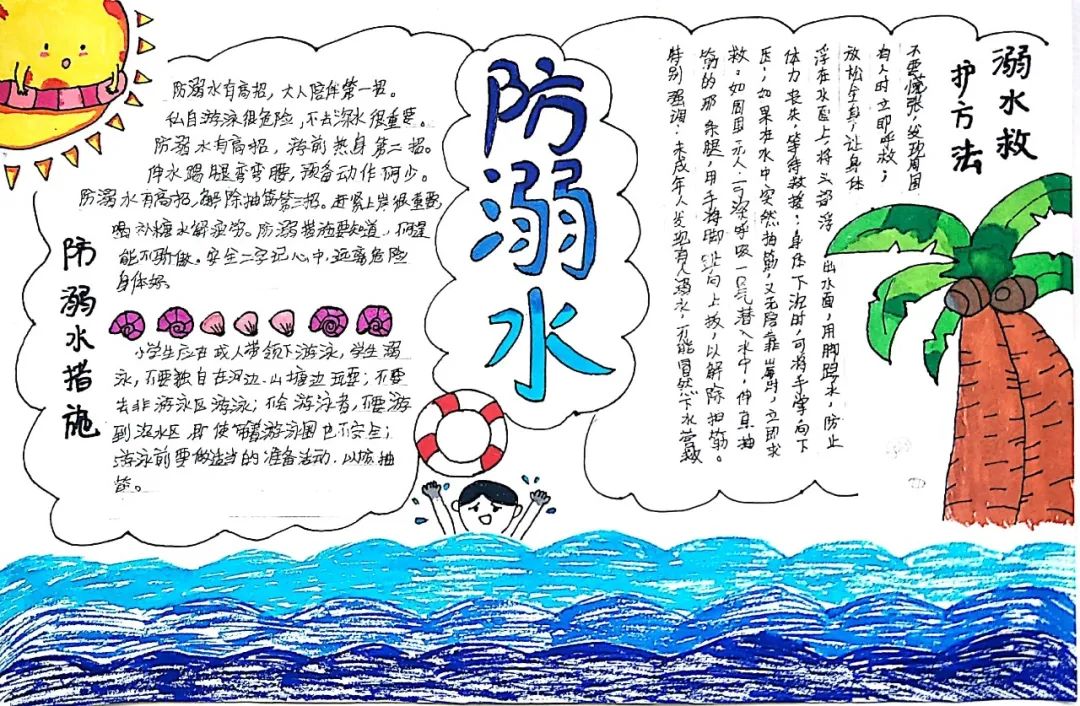 防溺水
防溺水措施
防溺水有高招，大人陪伴第一招。
私自游泳很危险，不去深水很重要。
防溺水有高招，游前热身第二招。
伸水踢腿弯弯腰，预备动作不可少。
防溺水有高招，解除抽筋第三招。赶紧上岸很重要
喝补糖水解疲劳。防溺措施要知道，不逞
能不骄傲。安全二字记心中，远离危险
身体好。
小学生应在成人带领下游泳，学生溺
泳，不要独自在河边、山塘边玩耍；不要
去非游泳区游泳；不会游泳者，不要游
到深水区，即使带着游泳圈也不安全；
游泳前要做适当的准备活动，以防抽
筋。
溺水救
护方法
不要慌张，发现周围
有人时立即呼救；
放松全身，让身体
浮在水面上，将头部浮出水面，用脚踢水，防止
体力丧失，等待救援；身体下沉时，可将手掌向下
压；如果在水中突然抽筋，又无法靠岸时，立即求
救。如周围无人，可深呼吸一口气潜入水中，伸直抽
筋的那条腿，用手将脚趾向上扳，以解除抽筋。
特别强调：未成年人发现有人溺水，不能冒然下水营救